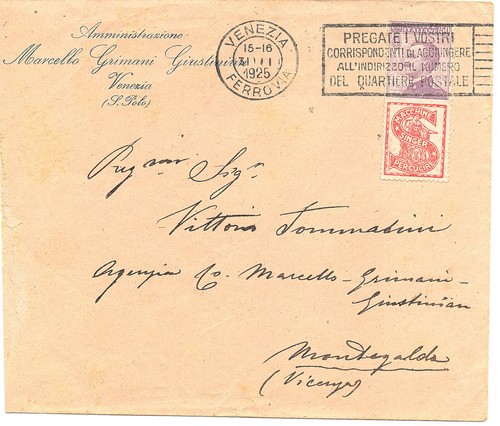 Amministrazione
Marcello Grimani Giustinian
Venezia
(S. Polo)
VENEZIA
15-16
1925
FERROVIA
PREGATE I VOSTRI
CORRISPONDENTI DI AGGIUNGERE
ALL'INDIRIZZO IL NUMERO
DEL QUARTIERE POSTALE
MACCHINE
SINGER
PER CUCIRE
Preg mo Sigr
Vittorio Tommasini
Agenzia Co. Marcello-Grimani-
Giustinian
Montegalda
(Vicenza)